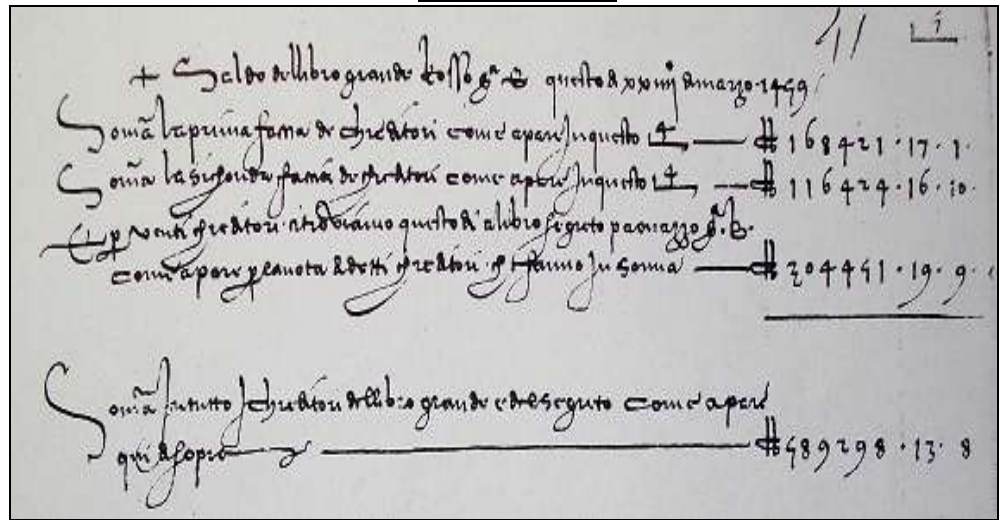 11
+ Saldo dellibro grande Rosso B questo dì xxiiij di marzo 1459
Somã la prima de chreditori come apare Inquesto 14 — 168421 · 17 · 1 ·
Somã la sichonda de chreditori come apare Inquesto 14 — 116424 · 16 · 10 ·
E p venti chreditori questo dì alibro segreto B ·
come apare p la nota di detti chreditori ch fanno In somã — 304451 · 19 · 9 ·
Somã In tutto I chreditori dellibro grande e del segreto come apare
qui di sopra — 589298 · 13 · 8